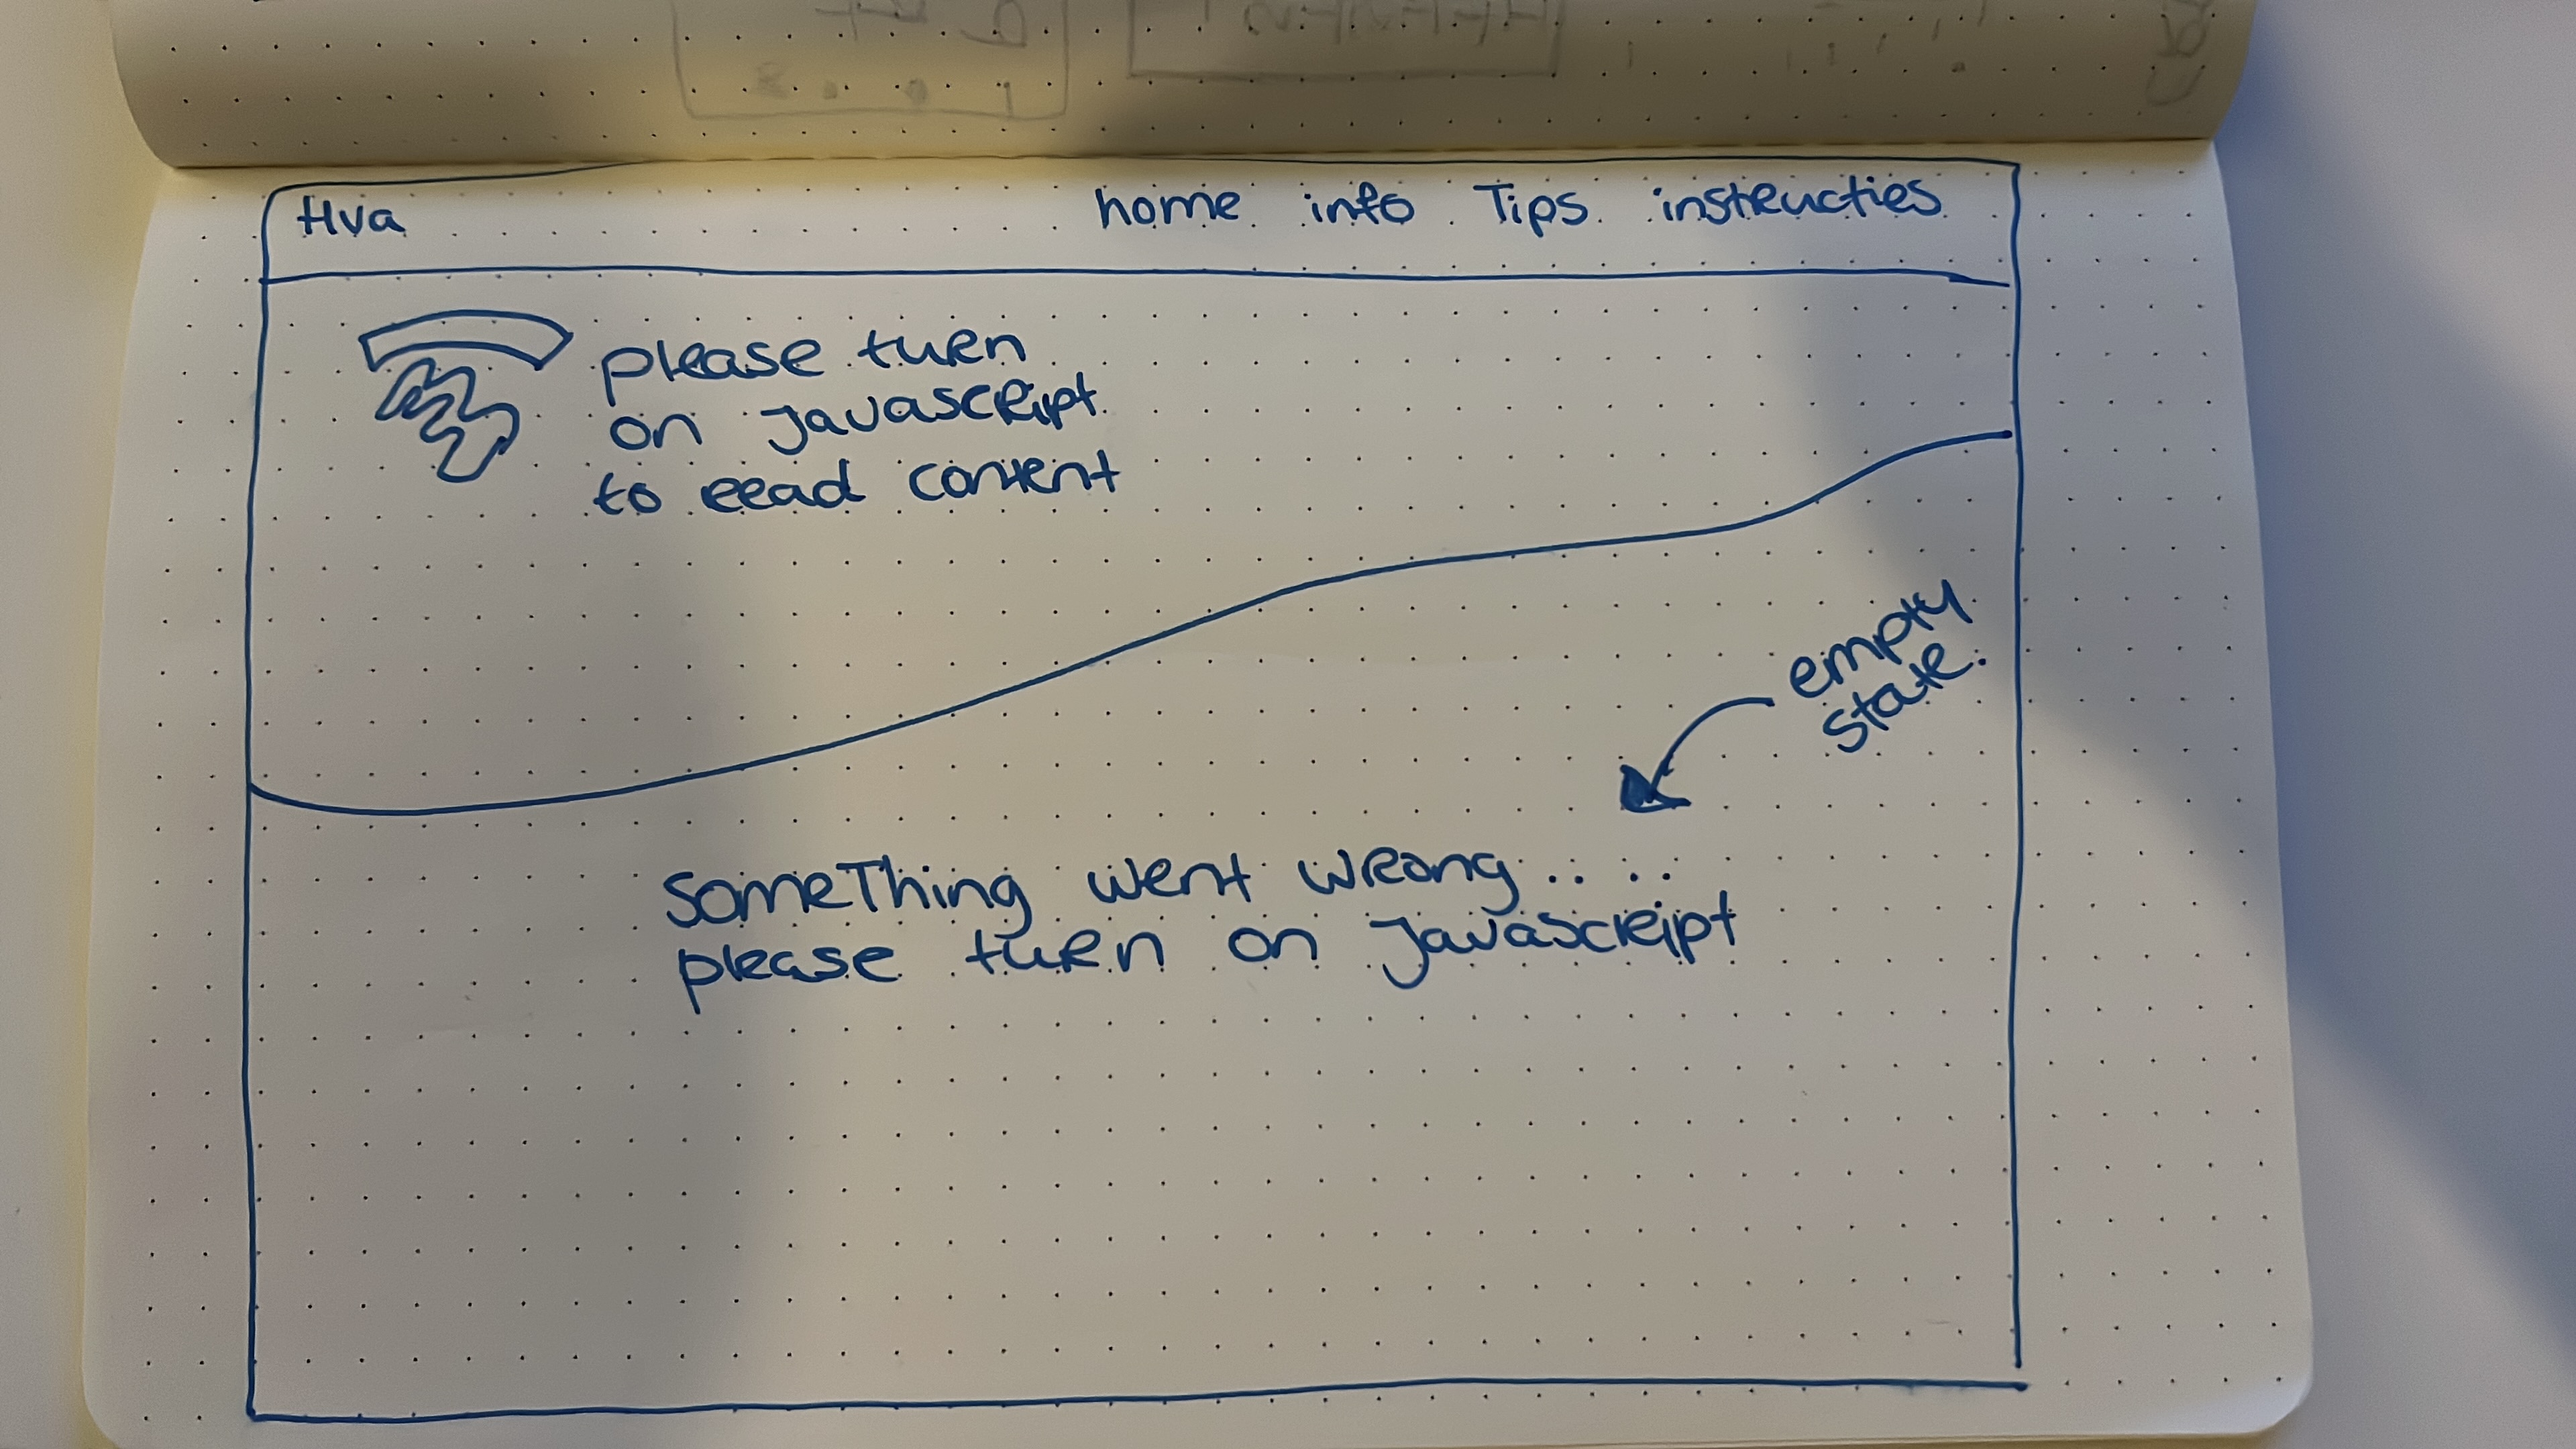 Hva home info Tips instructies
please turn
on javascript
to read content
empty
state.
Something went wrong....
please turn on javascript